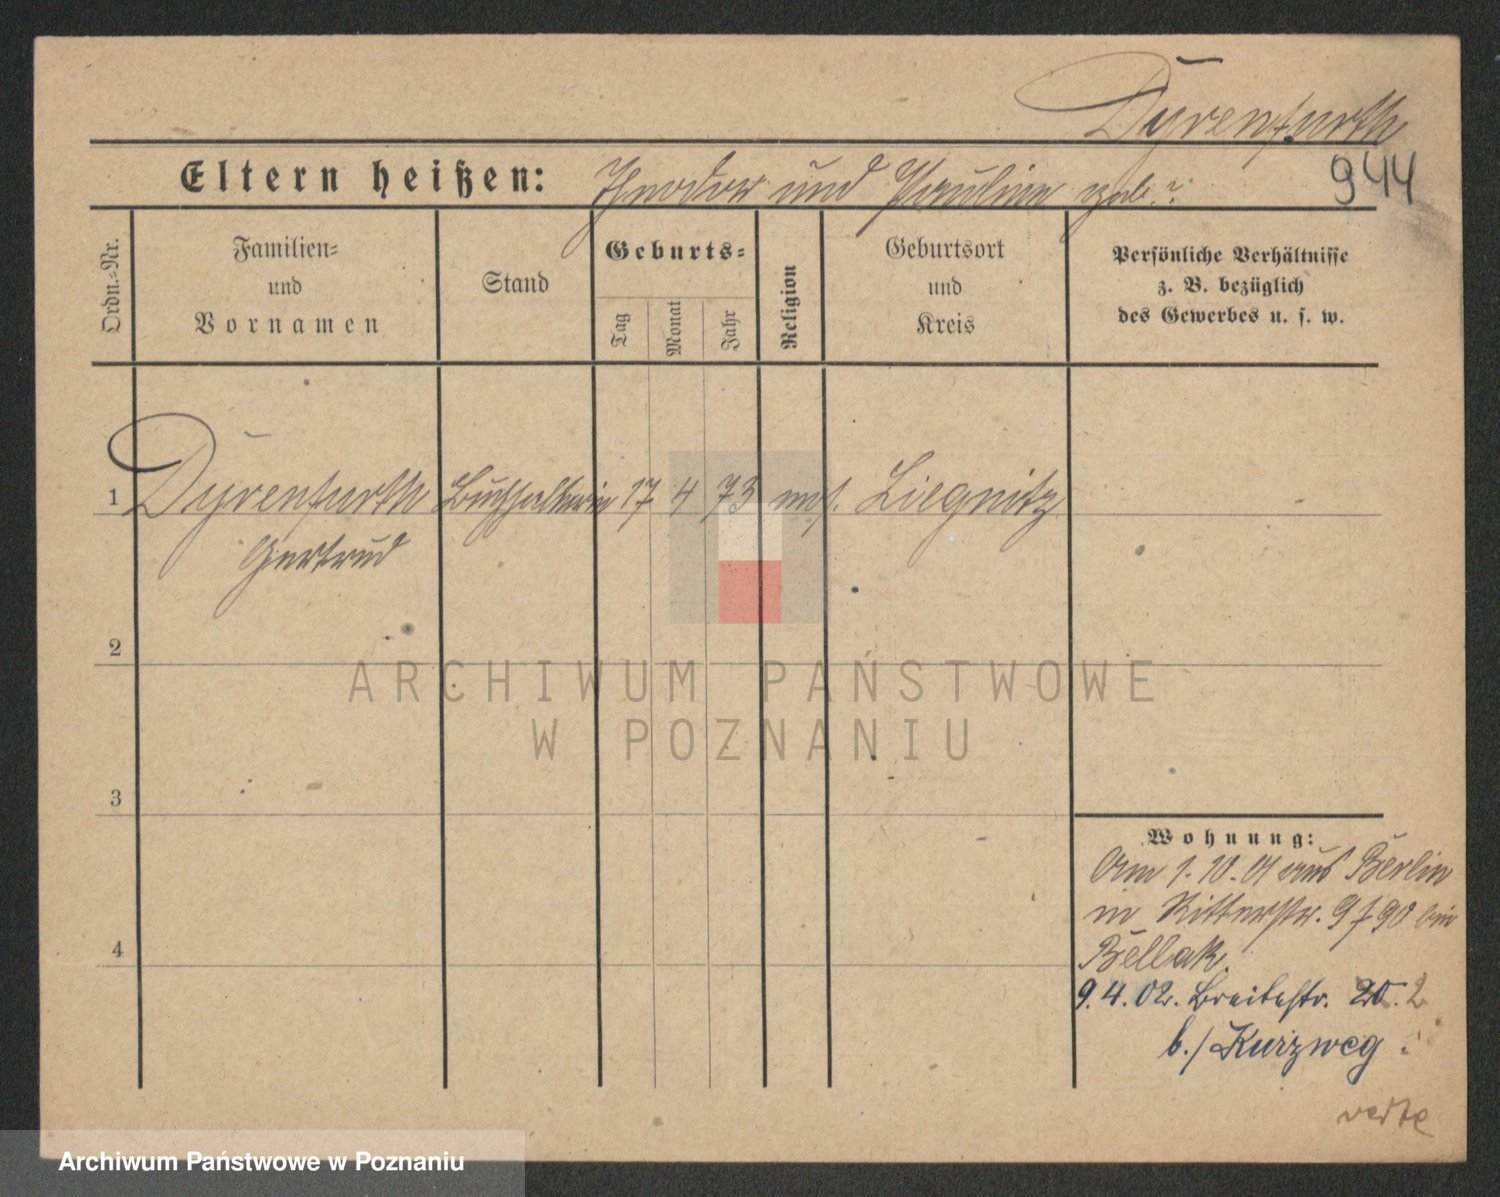 Dyrenfurth
944
Eltern heißen: Theodor und Pauline geb. ?
Ordn.-Nr.
Familien-
und
Vornamen
Stand
Geburts-
Tag
Monat
Jahr
Religion
Geburtsort
und
Kreis
Persönliche Verhältnisse
z. B. bezüglich
des Gewerbes u. s. w.
1 Dyrenfurth Buchhalterin 17 4 73 mos. Liegnitz
Gertrud
2
3
4
Wohnung:
Am 1.10.01 aus Berlin
in Ritterstr. 9 bei
Bellak
9.4.02. Breitestr. 20. 2
b./ Kurzweg
verte
ARCHIWUM PAŃSTWOWE
W POZNANIU
Archiwum Państwowe w Poznaniu